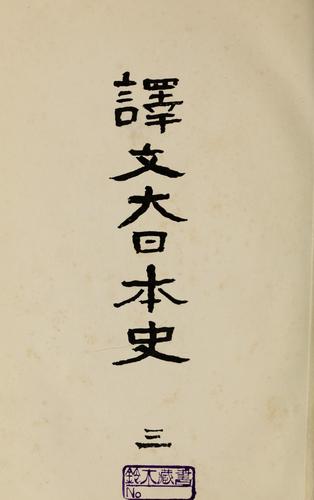 譯文大日本史
三
鈴木藏書
No